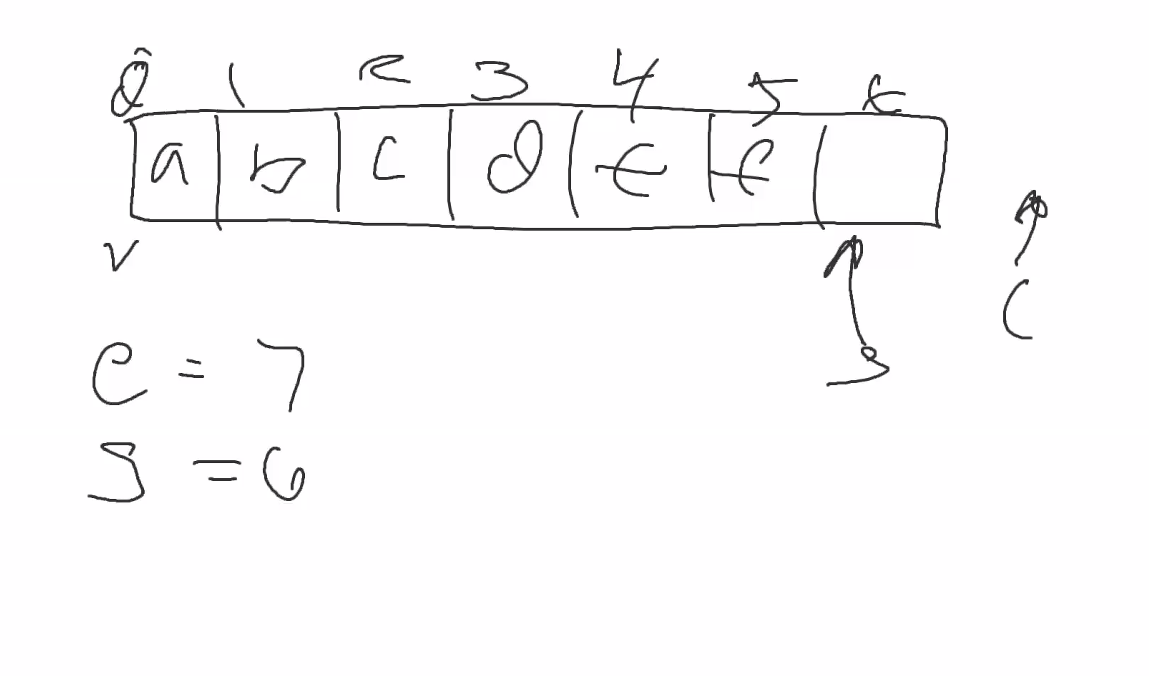 0 1 2 3 4 5
a b c d
v
s
c
e = 7
s = 6